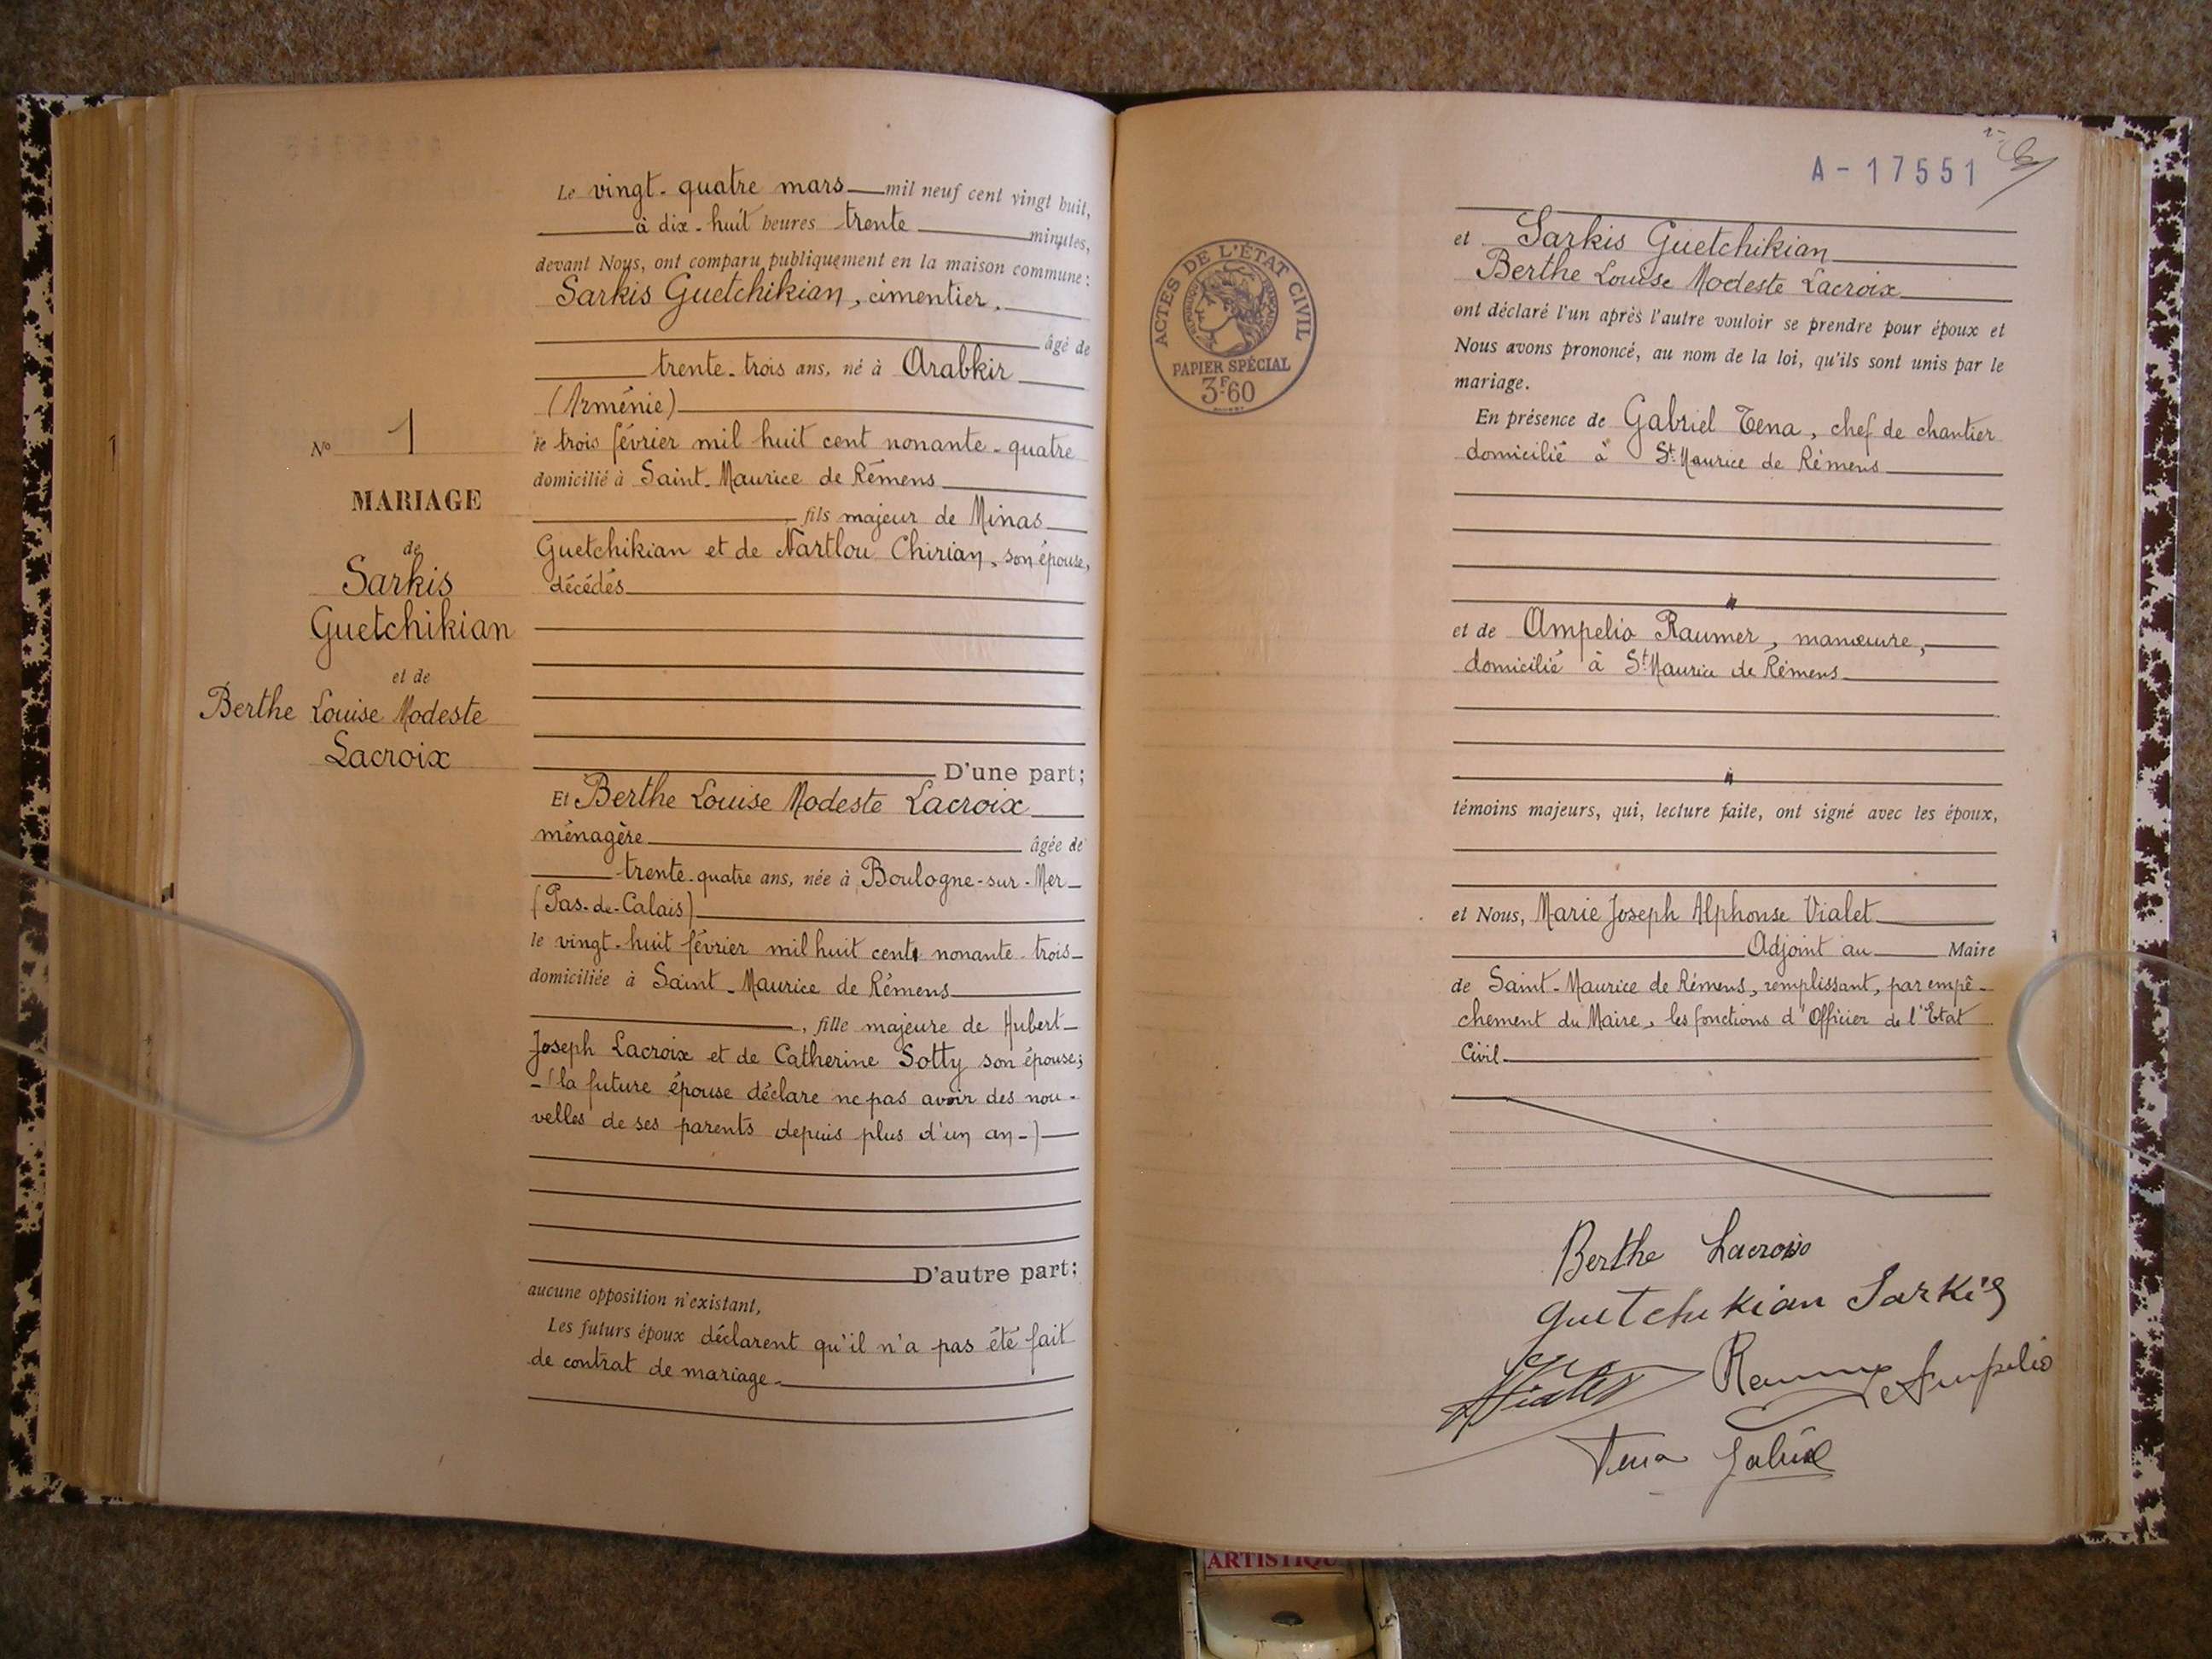 Le vingt-quatre mars mil neuf cent vingt huit,
à dix-huit heures trente minutes,
devant Nous, ont comparu publiquement en la maison commune :
Sarkis Guetchikian, cimentier,
âgé de
trente-trois ans, né à Arabkir
(Arménie)
le trois février mil huit cent nonante-quatre
domicilié à Saint-Maurice de Rémens
fils majeur de Minas
Guetchikian et de Nartlou Chirian, son épouse,
décédés
1
N° 1
MARIAGE
de
Sarkis
Guetchikian
et de
Berthe Louise Modeste
Lacroix
D'une part;
Et Berthe Louise Modeste Lacroix
ménagère âgée de
trente-quatre ans, née à Boulogne-sur-Mer
(Pas-de-Calais)
le vingt-huit février mil huit cent nonante-trois
domiciliée à Saint-Maurice de Rémens
, fille majeure de Hubert
Joseph Lacroix et de Catherine Sotty son épouse;
-(la future épouse déclare ne pas avoir des nou-
velles de ses parents depuis plus d'un an-)
D'autre part;
aucune opposition n'existant,
Les futurs époux déclarent qu'il n'a pas été fait
de contrat de mariage.
A-17551
ACTES DE L'ÉTAT CIVIL
RÉPUBLIQUE FRANÇAISE
PAPIER SPÉCIAL
3F60
Sarkis Guetchikian
et
Berthe Louise Modeste Lacroix
ont déclaré l'un après l'autre vouloir se prendre pour époux et
Nous avons prononcé, au nom de la loi, qu'ils sont unis par le
mariage.
En présence de Gabriel Tena, chef de chantier
domicilié à St Maurice de Rémens
et de Ampelio Raumer, manœuvre,
domicilié à St Maurice de Rémens
témoins majeurs, qui, lecture faite, ont signé avec les époux,
et Nous, Marie Joseph Alphonse Vialet
Adjoint au Maire
de Saint-Maurice de Rémens, remplissant, par empê-
chement du Maire, les fonctions d'Officier de l'Etat
Civil.
Berthe Lacroix
Guetchikian Sarkis
Vialet Raumer Ampelio
Tena Gabriel
ARTISTIQU